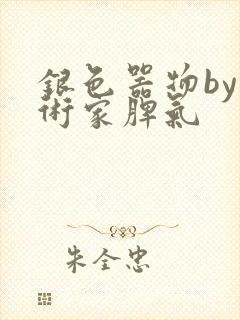 銀色器物by
術家脾氣
朱全忠